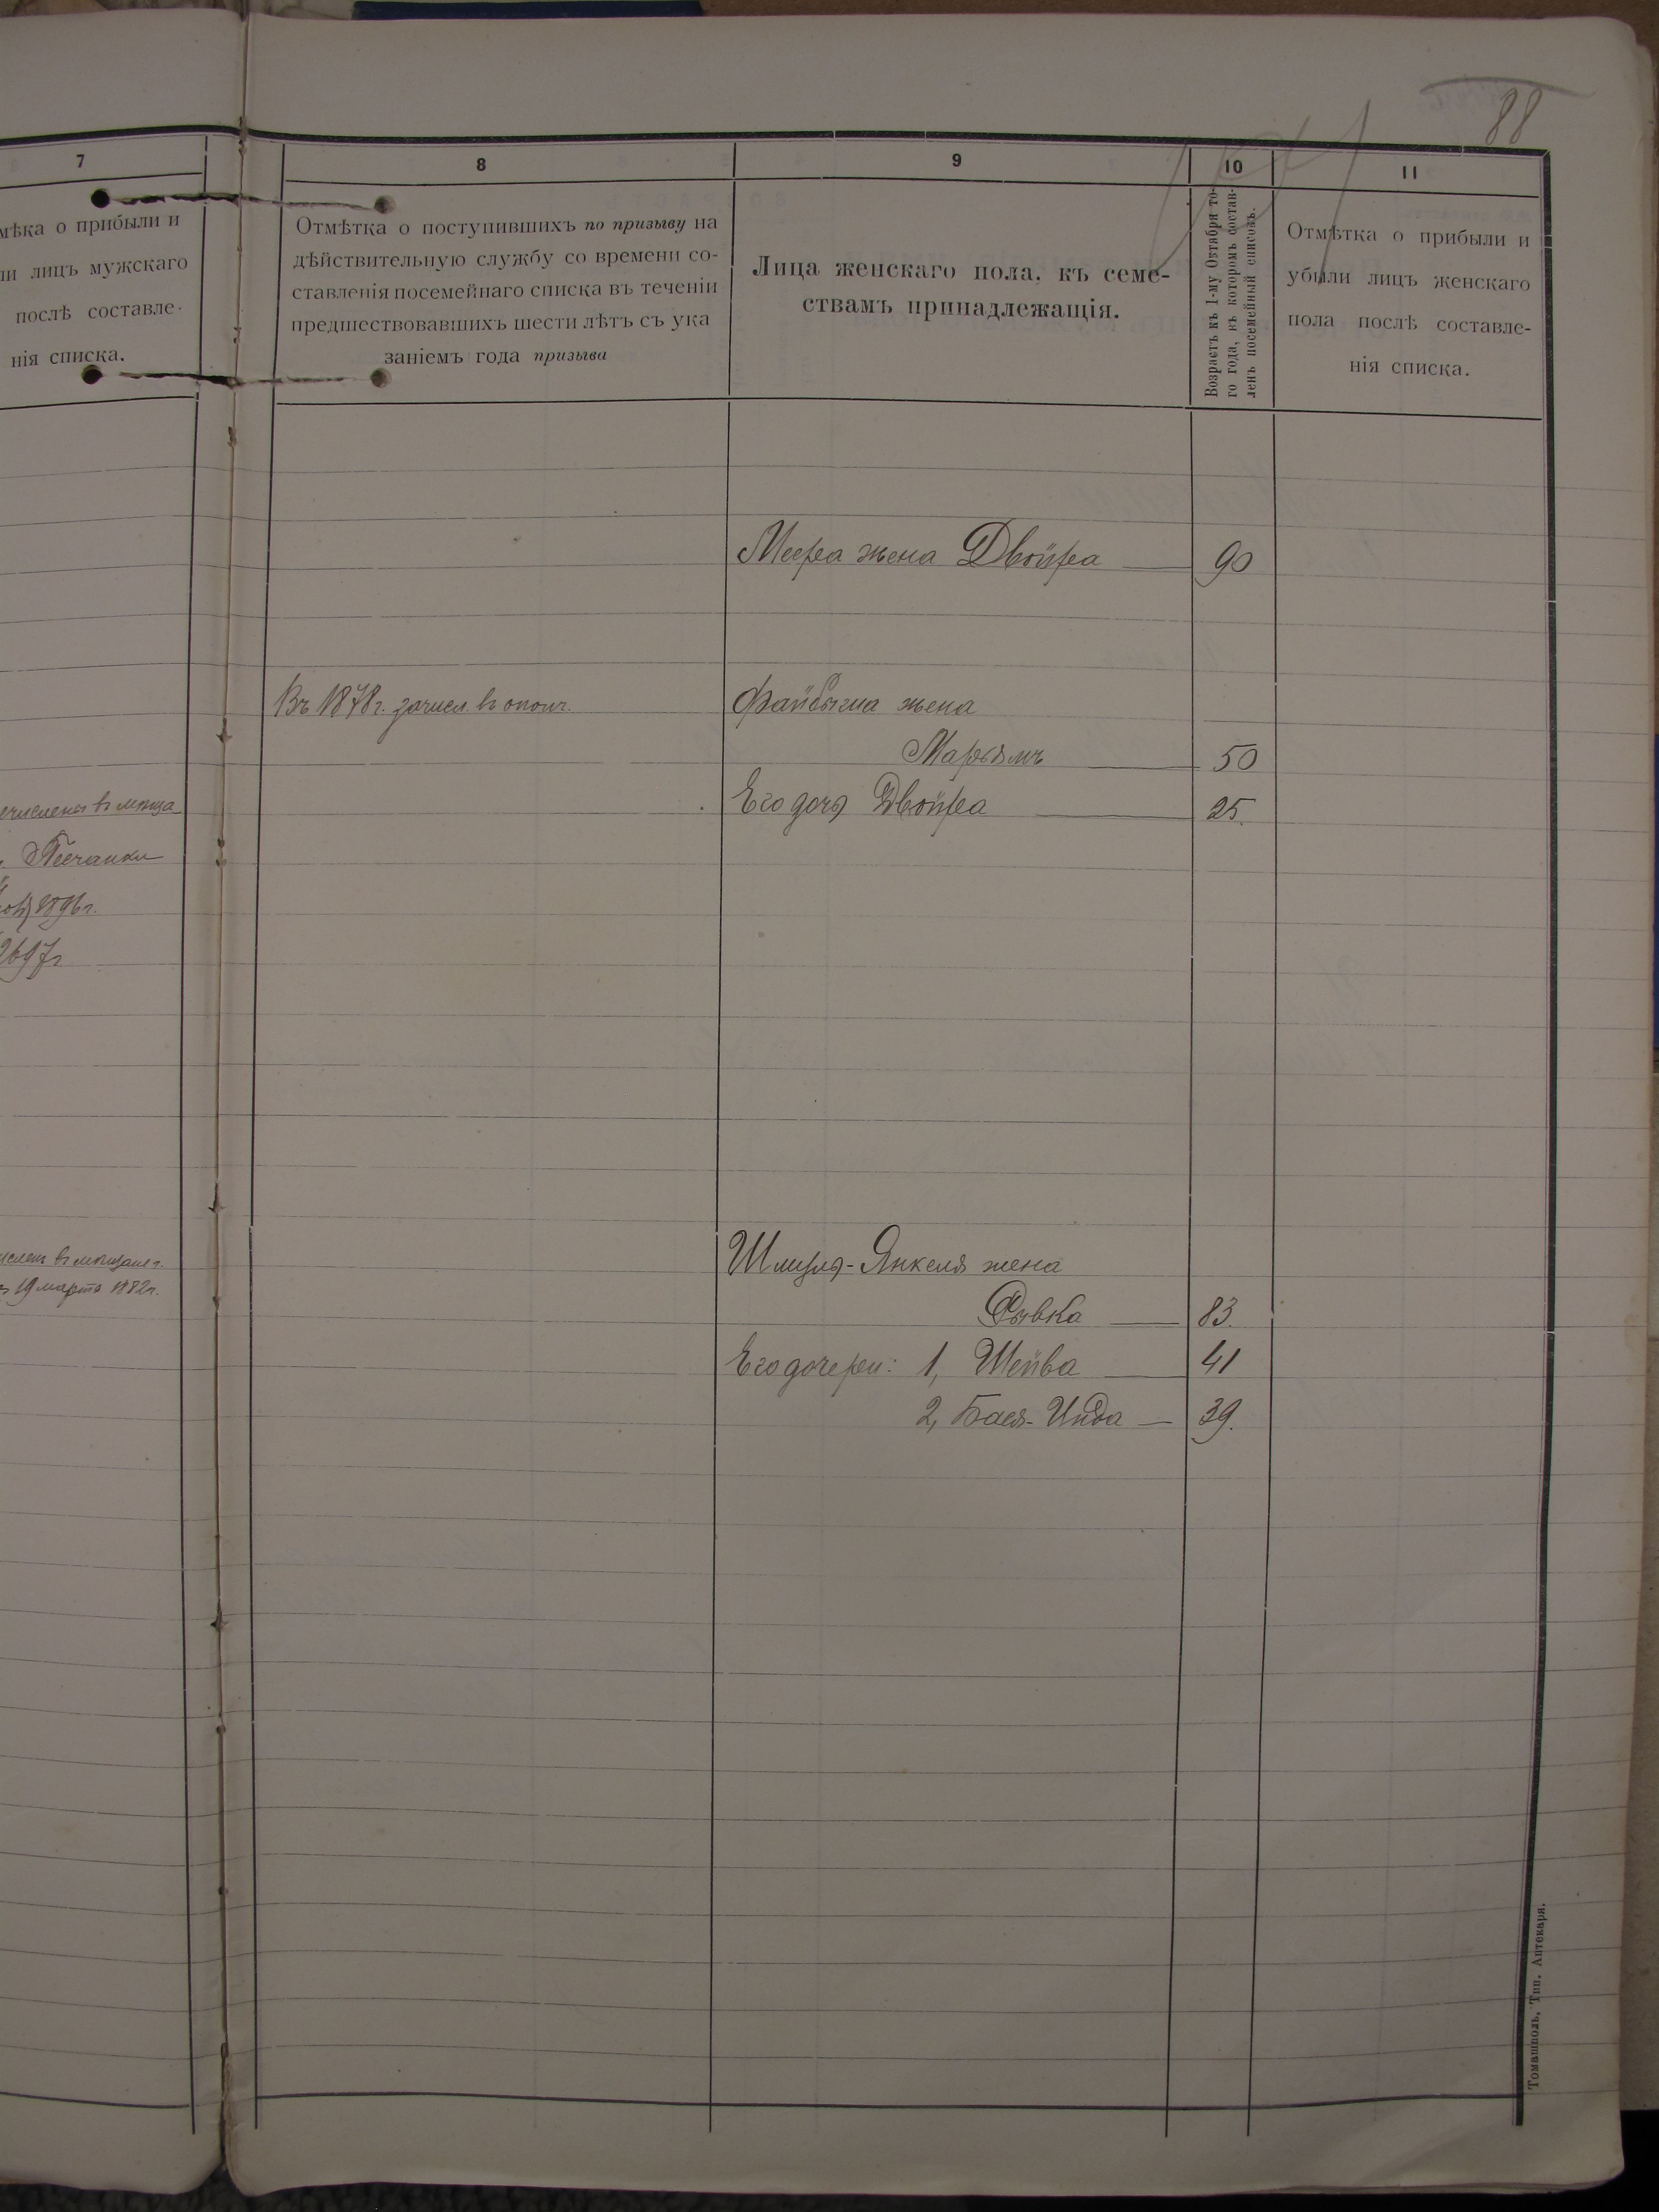 88
7
мѣка о прибыли и
ли лицъ мужскаго
послѣ составле-
нія списка.
8
Отмѣтка о поступившихъ по призыву на
дѣйствительную службу со времени со-
ставленія посемейнаго списка въ теченіи
предшествовавшихъ шести лѣтъ съ ука
заніемъ года призыва
9
Лица женскаго пола, къ семе-
ствамъ принадлежащія.
10
Возрастъ къ 1-му Октября то-
го года, въ которомъ состав-
ленъ посемейный списокъ.
11
Отмѣтка о прибыли и
убыли лицъ женскаго
пола послѣ составле-
нія списка.
Меера жена Двойра 90
Въ 1878 г. зачисл. въ ополч.
Файвиша жена
Марьямъ 50
Его дочь Двойра 25.
Песчанки
1896 г.
2697
19 марта 1882 г.
Шмиля-Янкеля жена
Рывка 83.
Его дочери: 1, Шейва 41
2, Бася-Инда 39.
Томашполь, Тип. Аптекаря.